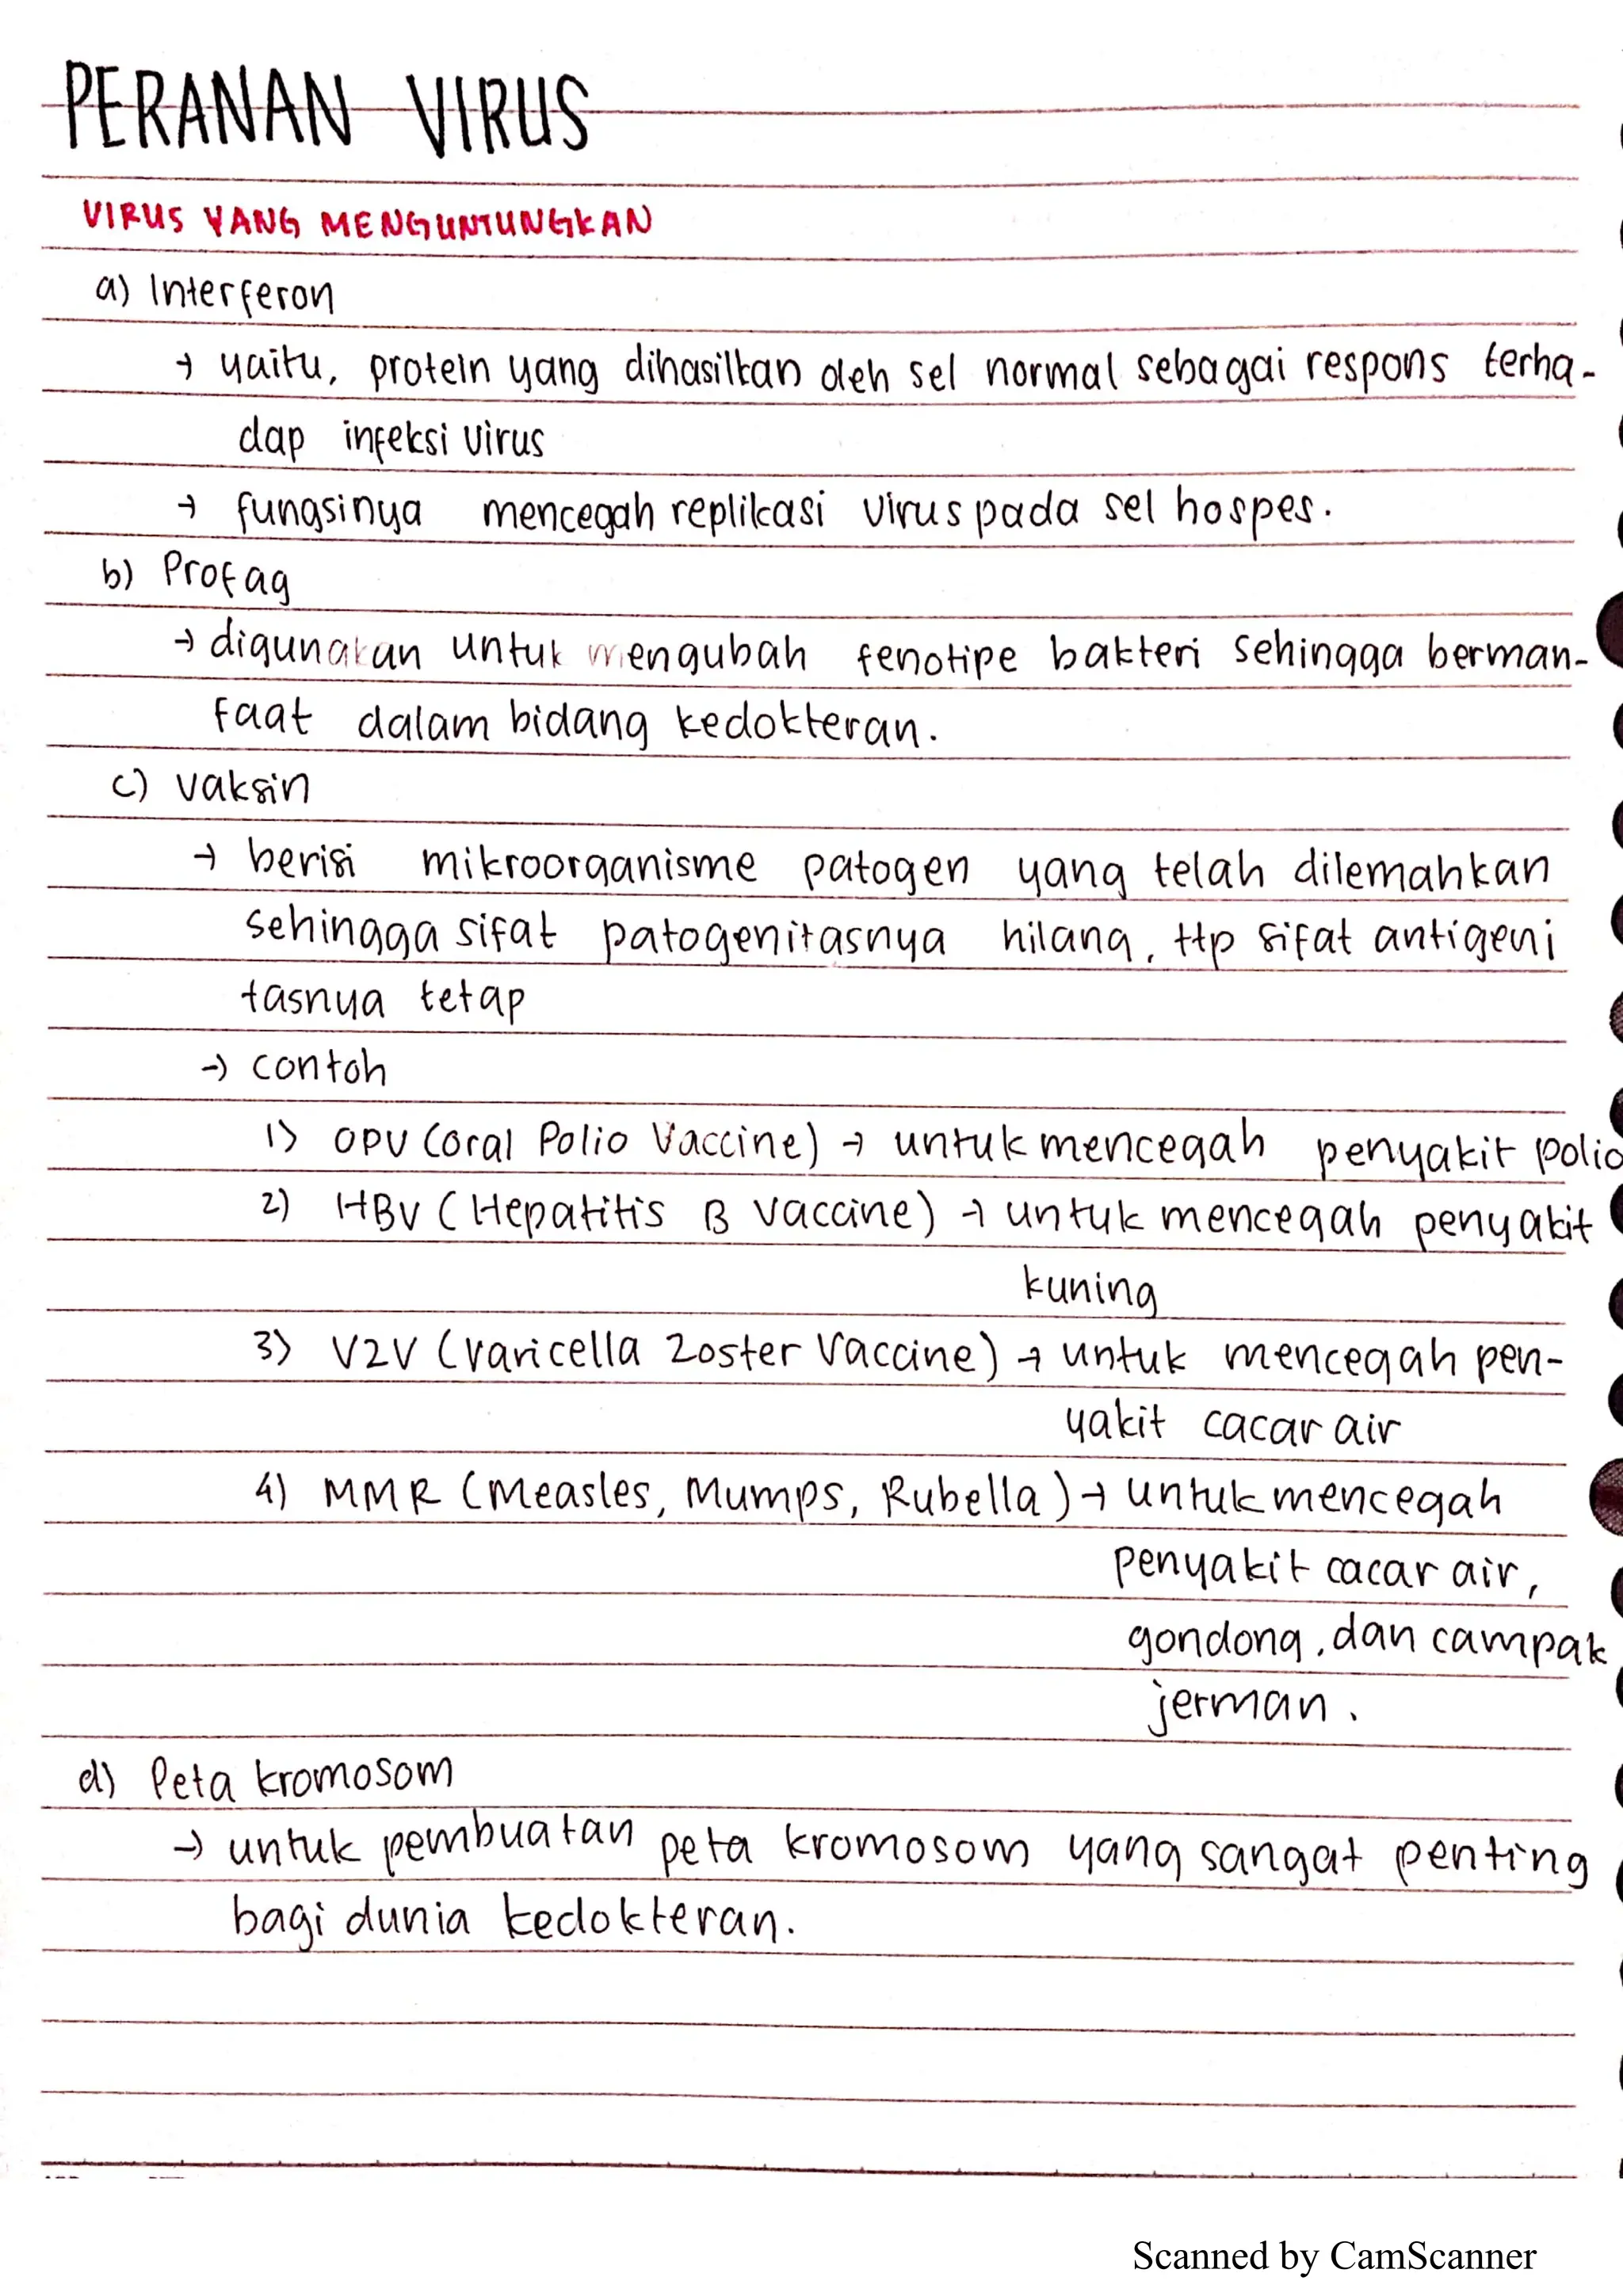 PERANAN VIRUS
VIRUS YANG MENGUNTUNGKAN
a) Interferon
→ yaitu, protein yang dihasilkan oleh sel normal sebagai respons terha-
dap infeksi virus
→ fungsinya mencegah replikasi virus pada sel hospes.
b) Profag
→ digunakan untuk mengubah fenotipe bakteri sehingga berman-
faat dalam bidang kedokteran.
c) Vaksin
→ berisi mikroorganisme patogen yang telah dilemahkan
sehingga sifat patogenitasnya hilang, ttp sifat antigeni
tasnya tetap
→ contoh
1) OPV (Oral Polio Vaccine) → untuk mencegah penyakit polio
2) HBV (Hepatitis B Vaccine) → untuk mencegah penyakit
kuning
3) VZV (Varicella Zoster Vaccine) → untuk mencegah pen-
yakit cacar air
4) MMR (Measles, Mumps, Rubella) → untuk mencegah
penyakit cacar air,
gondong, dan campak
jerman.
d) Peta kromosom
→ untuk pembuatan peta kromosom yang sangat penting
bagi dunia kedokteran.
Scanned by CamScanner